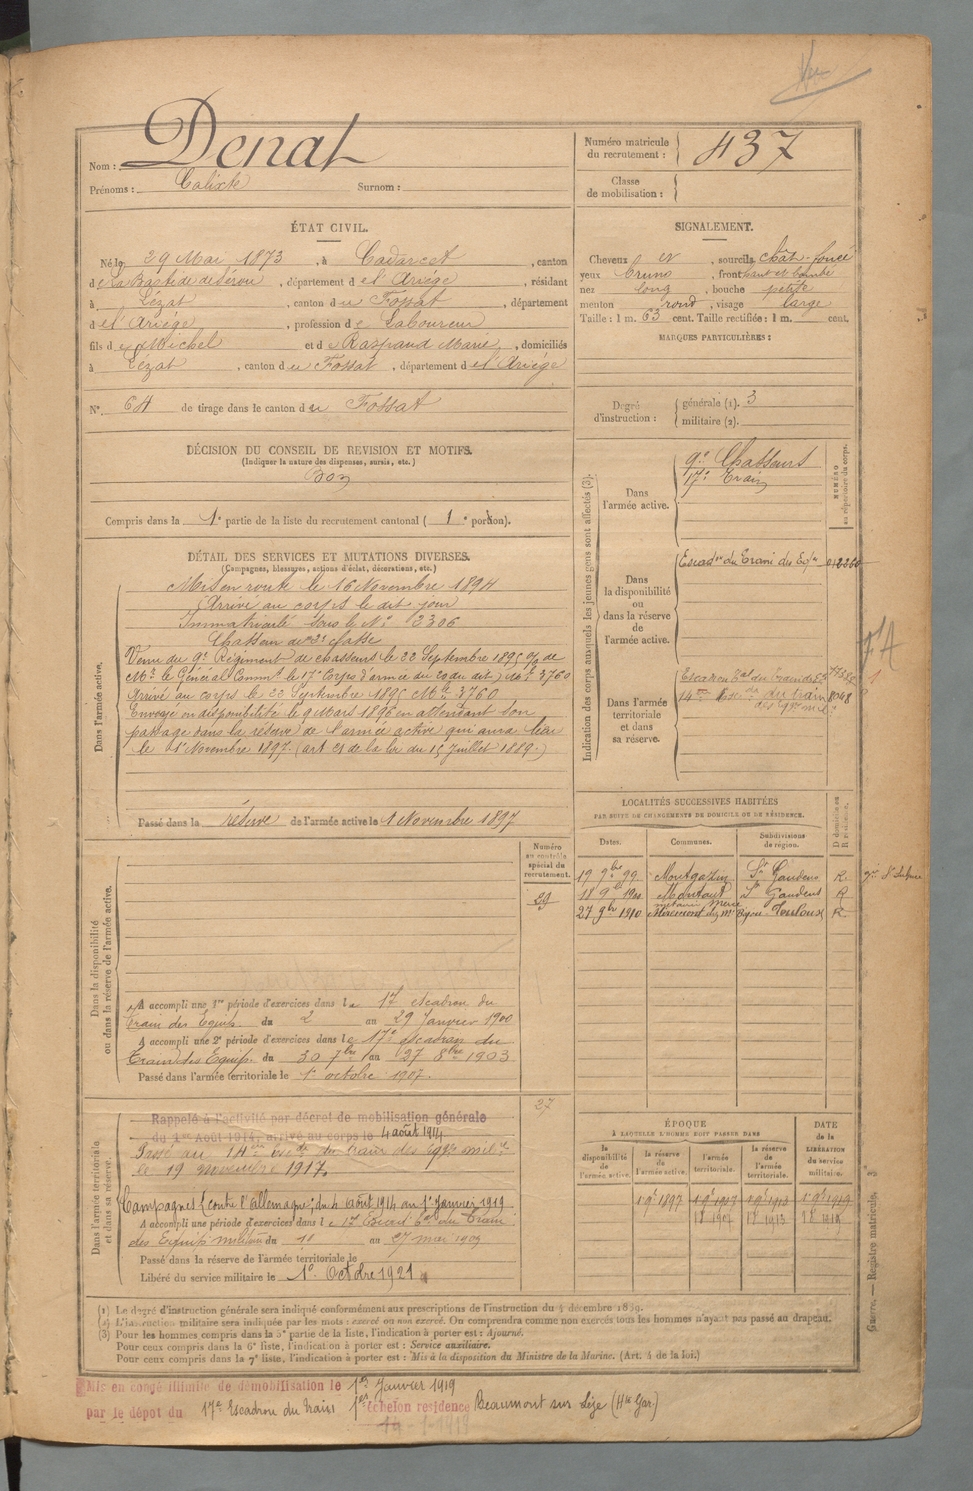 Vu
Nom : Denat
Prénoms : Calixte Surnom :
Numéro matricule du recrutement : 437
Classe de mobilisation :
ÉTAT CIVIL.
Né le 29 Mai 1873, à Cadarcet, canton
de La Bastide de Sérou, département de l'Ariège, résidant
à Lézat, canton du Fossat, département
de l'Ariège, profession de Laboureur
fils de Michel et de Raspaud Marie, domiciliés
à Lézat, canton du Fossat, département de l'Ariège
N° 64 de tirage dans le canton du Fossat
SIGNALEMENT.
Cheveux et, sourcils chât-foncé
yeux bruns, front haut et bombé
nez long, bouche petite
menton rond, visage large
Taille : 1 m. 63 cent. Taille rectifiée : 1 m. cent.
MARQUES PARTICULIÈRES :
Degré d'instruction : générale (1). 3
militaire (2).
DÉCISION DU CONSEIL DE REVISION ET MOTIFS.
(Indiquer la nature des dispenses, sursis, etc.)
Bon
Compris dans la 1e partie de la liste du recrutement cantonal ( 1e portion).
DÉTAIL DES SERVICES ET MUTATIONS DIVERSES.
(Campagnes, blessures, actions d'éclat, décorations, etc.)
Dans l'armée active.
Mis en route le 16 Novembre 1894
Arrivé au corps le dit jour
Immatriculé sous le N° 3306
Chasseur de 2e classe
Venu du 9e Régiment de chasseurs le 22 Septembre 1895 o/ de
Mr le Général Commt le 17e Corps d'armée du 20 du dit) Mle 3760
Arrivé au corps le 22 Septembre 1895 Mle 3760
Envoyé en disponibilité le 9 Mars 1896 en attendant son
passage dans la réserve de l'armée active qui aura lieu
le 1e Novembre 1897. (art de la loi du 15 Juillet 1889.)
Passé dans la réserve de l'armée active le 1 Novembre 1897
Indication des corps auxquels les jeunes gens sont affectés (3).
NUMÉRO au répertoire du corps.
Dans l'armée active.
9e Chasseurs
17e Train
Dans la disponibilité ou dans la réserve de l'armée active.
Escadon du Train des Eqes 012260
Dans l'armée territoriale et dans sa réserve.
Escadron Tal du Train des Es
14me Escon du train 8048
des Eqges mil.
FA
1
LOCALITÉS SUCCESSIVES HABITÉES
PAR SUITE DE CHANGEMENTS DE DOMICILE OU DE RÉSIDENCE.
Dates. Communes. Subdivisions de région. D domicile ou R résidence.
19 9bre 99 Montgazin St Gaudens R.
18 9bre 1900 Montaut St Gaudens R
27 9bre 1910 Miremont Toulouse R.
Dans la disponibilité ou dans la réserve de l'armée active.
Numéro au contrôle spécial du recrutement.
29
A accompli une 1re période d'exercices dans le 17e escadron du
Train des Equip. du 2 au 29 Janvier 1900
A accompli une 2e période d'exercices dans le 17e escadron du
Train des Equip. du 30 7bre au 27 8bre 1903.
Passé dans l'armée territoriale le 1er octobre 1907.
27
Dans l'armée territoriale et dans sa réserve.
Rappelé à l'activité par décret de mobilisation générale
du 1er Août 1914, arrivé au corps le 4 août 1914
Passé au 14me escon du train des éqges milres
le 19 novembre 1917.
Campagnes (contre l'Allemagne) du 4 août 1914 au 1er Janvier 1919
A accompli une période d'exercices dans le 17e Escad Tal du Train
des Equip militres du 11 au 27 mai 1909
Passé dans la réserve de l'armée territoriale le
Libéré du service militaire le 1er Octobre 1921
ÉPOQUE
À LAQUELLE L'HOMME DOIT PASSER DANS
la disponibilité de l'armée active. la réserve de l'armée active. l'armée territoriale. la réserve de l'armée territoriale.
DATE de la LIBÉRATION du service militaire.
1 9e 1897 1 9e 1907 1 9e 1913 1 9e 1919
1907 1913 1919
(1) Le degré d'instruction générale sera indiqué conformément aux prescriptions de l'instruction du 4 décembre 1889.
(2) L'instruction militaire sera indiquée par les mots : exercé ou non exercé. On comprendra comme non exercés tous les hommes n'ayant pas passé au drapeau.
(3) Pour les hommes compris dans la 5e partie de la liste, l'indication à porter est : Ajourné.
Pour ceux compris dans la 6e liste, l'indication à porter est : Service auxiliaire.
Pour ceux compris dans la 7e liste, l'indication à porter est : Mis à la disposition du Ministre de la Marine. (Art. 4 de la loi.)
Guerre. — Registre matricule,
Mis en congé illimité de démobilisation le 1er Janvier 1919
par le dépot du 17e Escadron du Train 1er échelon residence Beaumont sur Lèze (Hte Gar.)
19-1-1919